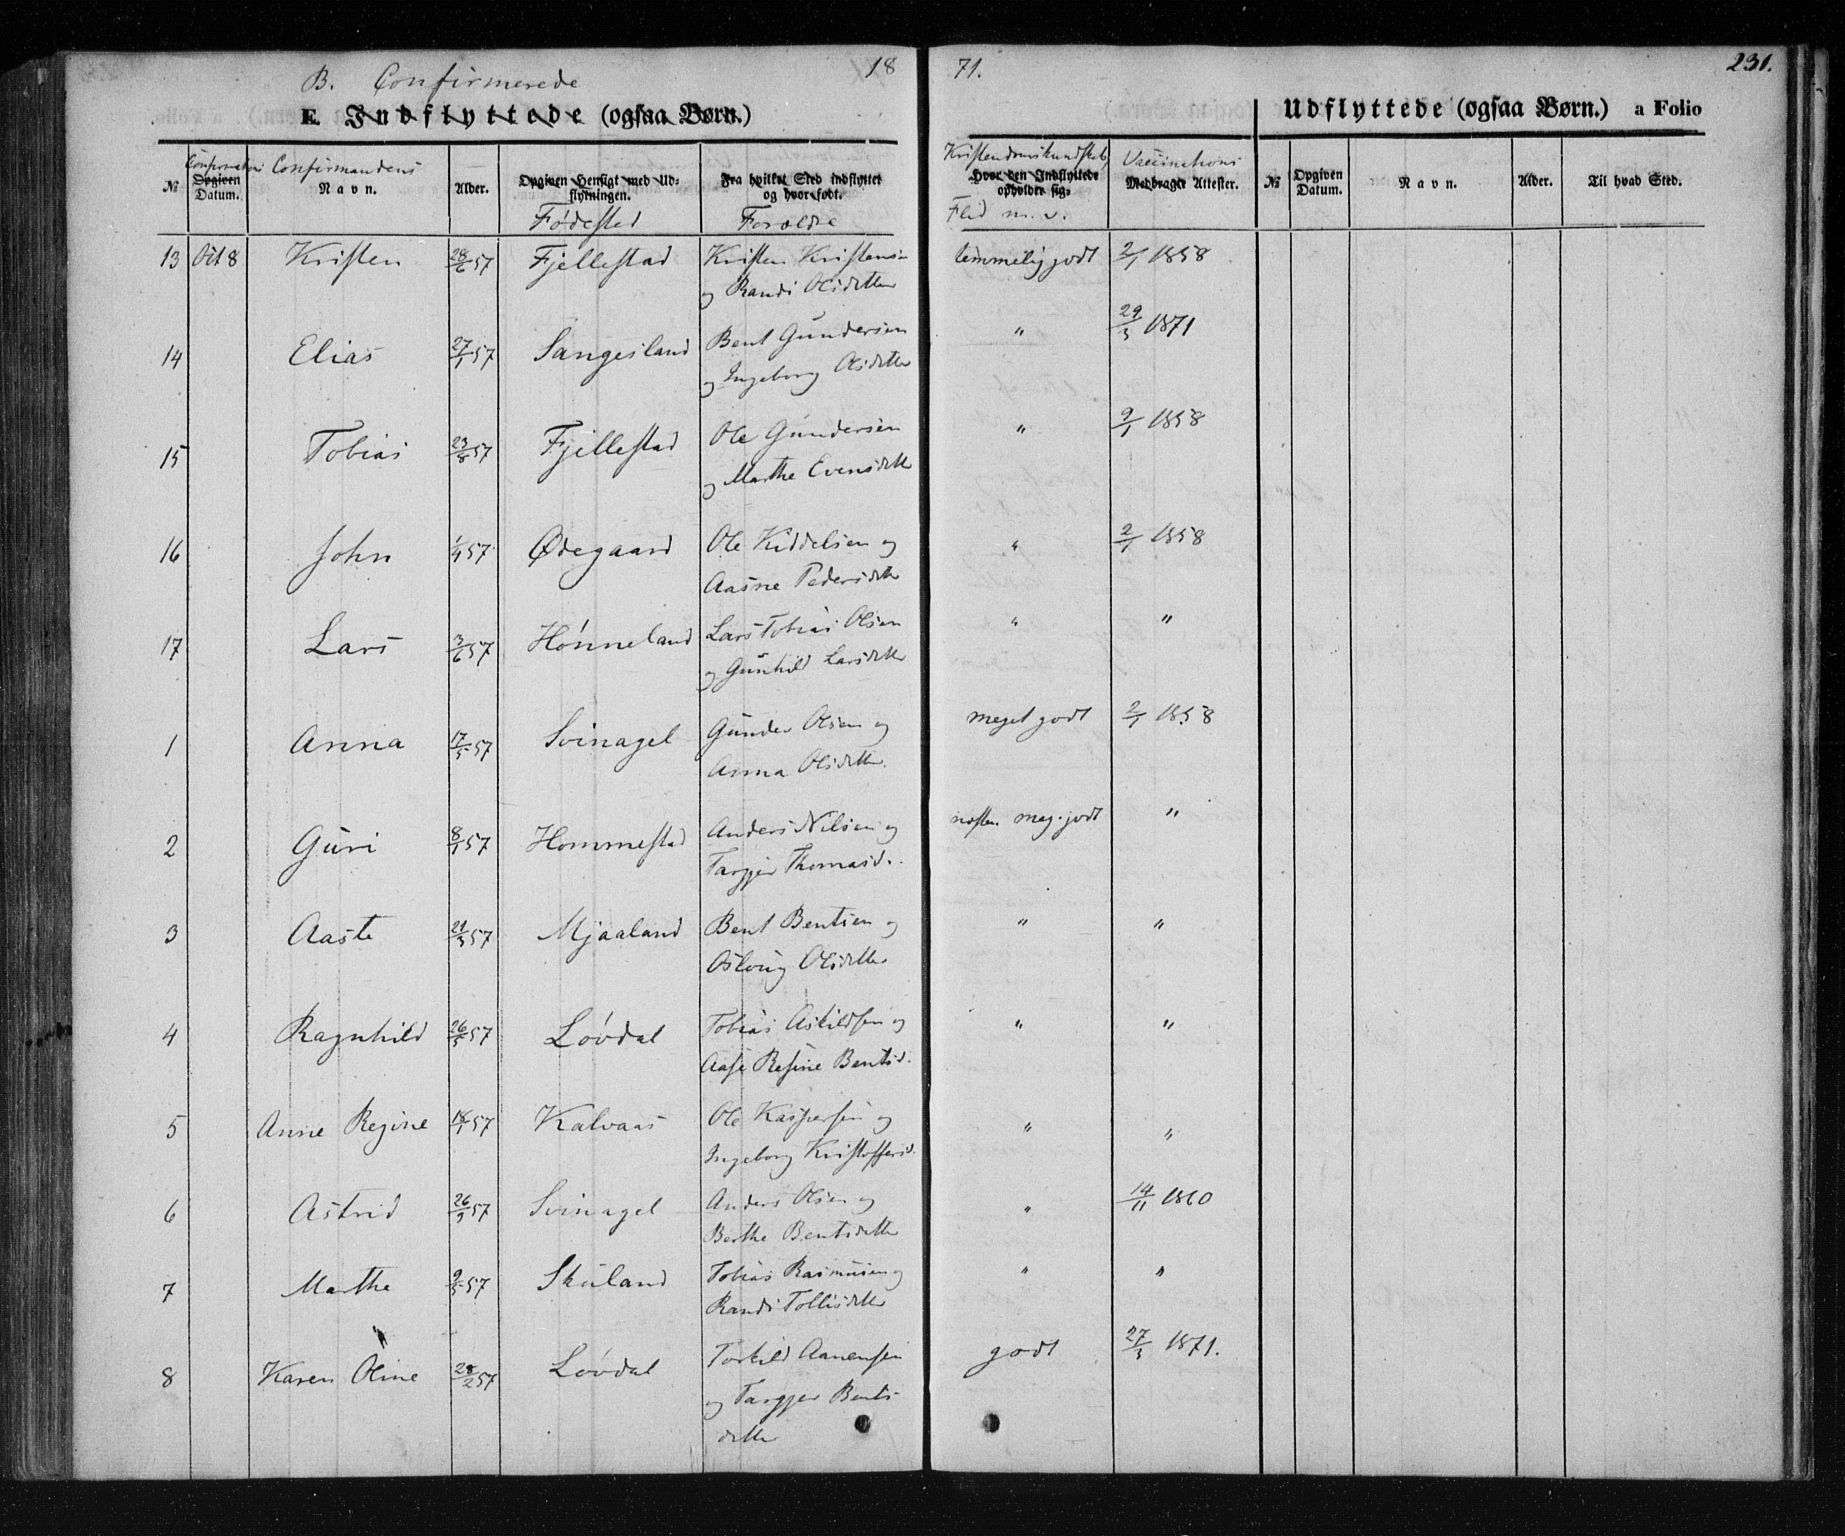 B. Confirmerede
18
71.
231.
E. Indflyttede (ogsaa Børn.)
Udflyttede (ogsaa Børn.) a Folio
№
Confirmations
Opgiven Datum.
Confirmandens
Navn.
Alder.
Opgiven Hensigt med Udflytningen.
Fødested
Fra hvilket Sted indflyttet og hvor født.
Forældre
Kristendomskundskab,
Hvor den Indflyttede opholder sig.
Flid m. v.
Vaccinations
Medbragte Attester.
№ Opgiven Datum. Navn. Alder. Til hvad Sted.
13 Oct 8 Kristen 28/6 57 Fjellestad Kristen Kristensen temmelig godt 2/1 1858
og Randi Olsdatter
14 Elias 27/1 57 Sangesland Bent Gundersen " 29/3 1871
og Ingeborg Olsdatter
15 Tobias 23/8 57 Fjellestad Ole Gundersen " 9/1 1858
og Marthe Evensdatter
16 John 1/4 57 Ødegaard Ole Kiddelsen og " 2/1 1858
Aasne Pedersdatter
17 Lars 3/6 57 Hønneland Lars Tobias Olsen " "
og Gunhild Larsdatter
1 Anna 17/5 57 Svinagel Gunder Olsen og meget godt 2/1 1858
Anna Olsdatter
2 Guri 8/1 57 Hommestad Anders Nilsen og næsten meg. godt "
Targjer Thomasd.
3 Aaste 21/3 57 Mjaaland Bent Bentsen og " "
Oslaug Olsdatter
4 Ragnhild 26/5 57 Løvdal Tobias Askildsen og " "
Aase Resine Bentsd.
5 Anne Regine 18/1 57 Kalvaas Ole Kaspersen og " "
Ingeborg Kristoffersd.
6 Astrid 26/3 57 Svinagel Anders Olsen og " 14/11 1860
Berthe Bentsdatter
7 Marthe 9/5 57 Skuland Tobias Rasmusen og " "
Randi Tollisdatter
8 Karen Oline 28/2 57 Løvdal Torkild Aanensen godt 27/3 1871.
og Targjer Bents-
datter